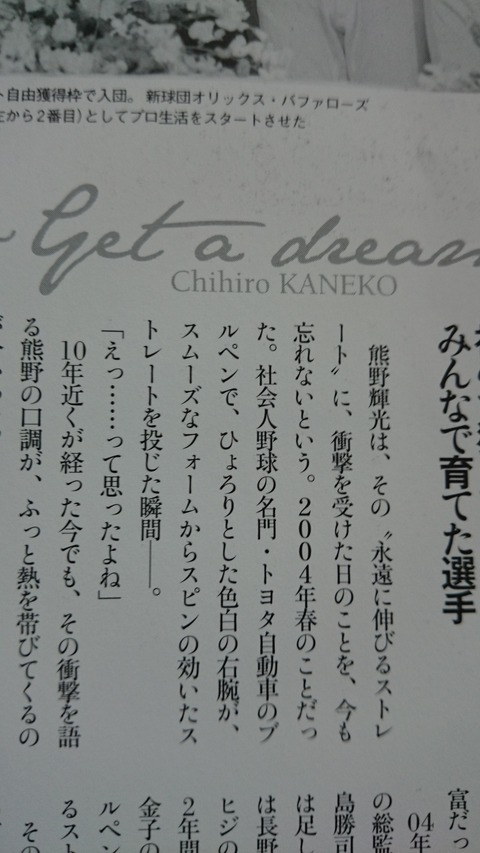 ト自由獲得枠で入団。新球団オリックス・バファローズ
左から2番目)としてプロ生活をスタートさせた
Get a dream
Chihiro KANEKO
みんなで育てた選手
熊野輝光は、その〝永遠に伸びるストレ
ート〟に、衝撃を受けた日のことを、今も
忘れないという。2004年春のことだっ
た。社会人野球の名門・トヨタ自動車のブ
ルペンで、ひょろりとした色白の右腕が、
スムーズなフォームからスピンの効いたス
トレートを投じた瞬間――。
「えっ……って思ったよね」
10年近くが経った今でも、その衝撃を語
る熊野の口調が、ふっと熱を帯びてくるの
富だっ
04年
の総監
島勝司
は足し
は長野
ヒジの
2年間
金子の
ルペン
るスト
その